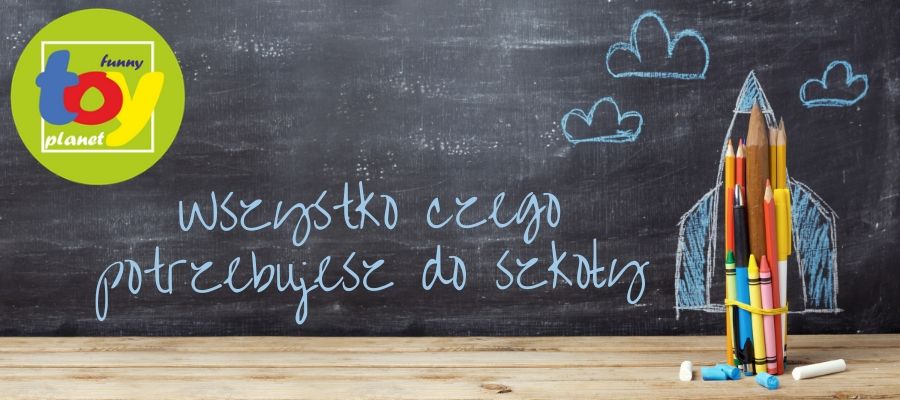 funny
toy
planet
wszystko czego
potrzebujesz do szkoły